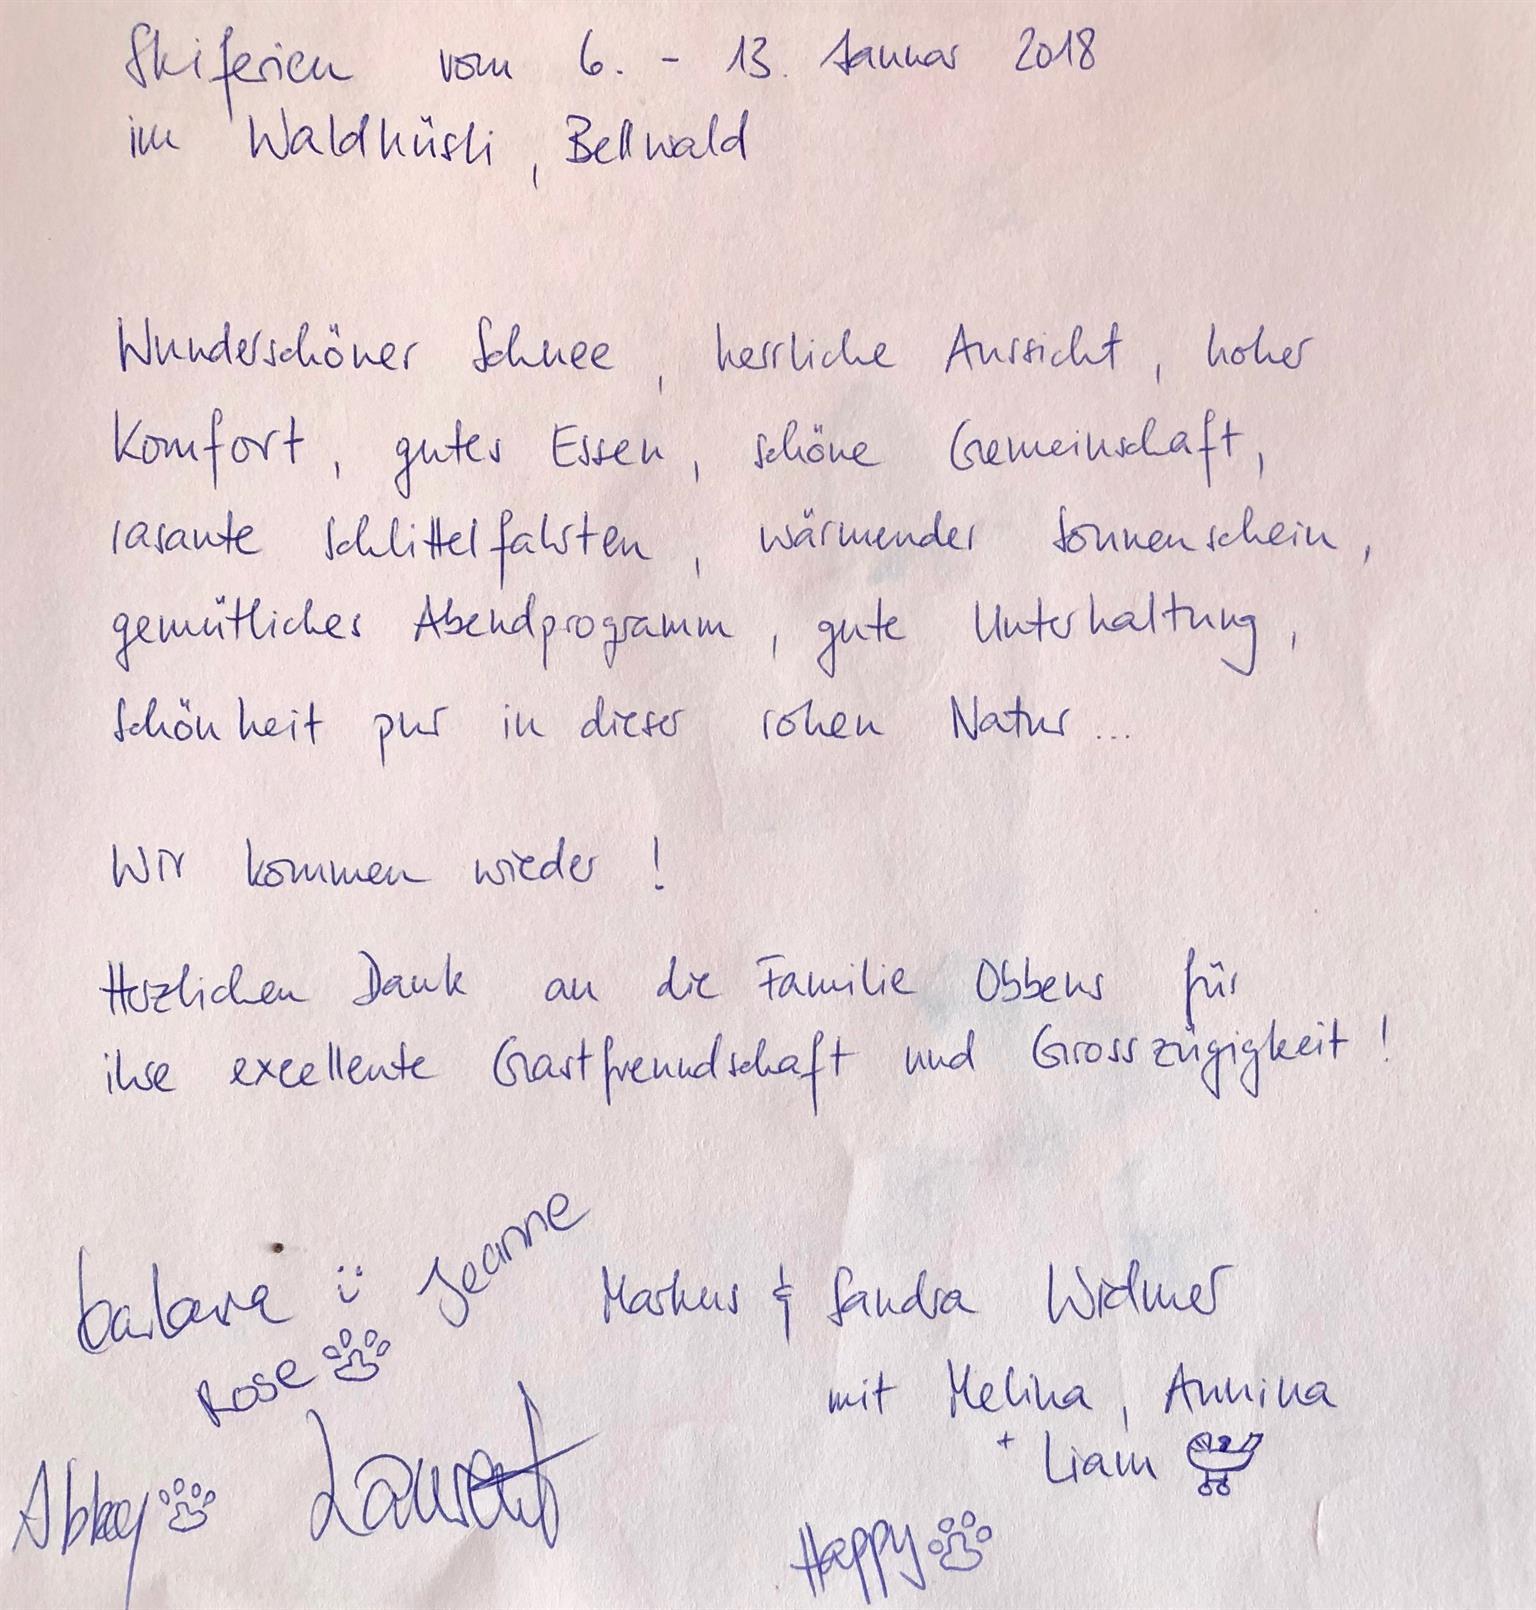 Skiferien vom 6. - 13. Januar 2018
im Waldhüsli, Bellwald
Wunderschöner Schnee, herrliche Aussicht, hoher
Komfort, gutes Essen, schöne Gemeinschaft,
rasante Schlittelfahrten, wärmender Sonnenschein,
gemütliches Abendprogramm, gute Unterhaltung,
Schönheit pur in dieser rohen Natur...
Wir kommen wieder!
Herzlichen Dank an die Familie Obbens für
ihre excellente Gastfreundschaft und Grosszügigkeit!
barbara Jeanne Markus & Sandra Widmer
Rose mit Melina, Annina
+ Liam
Abbey Laurent
Happy